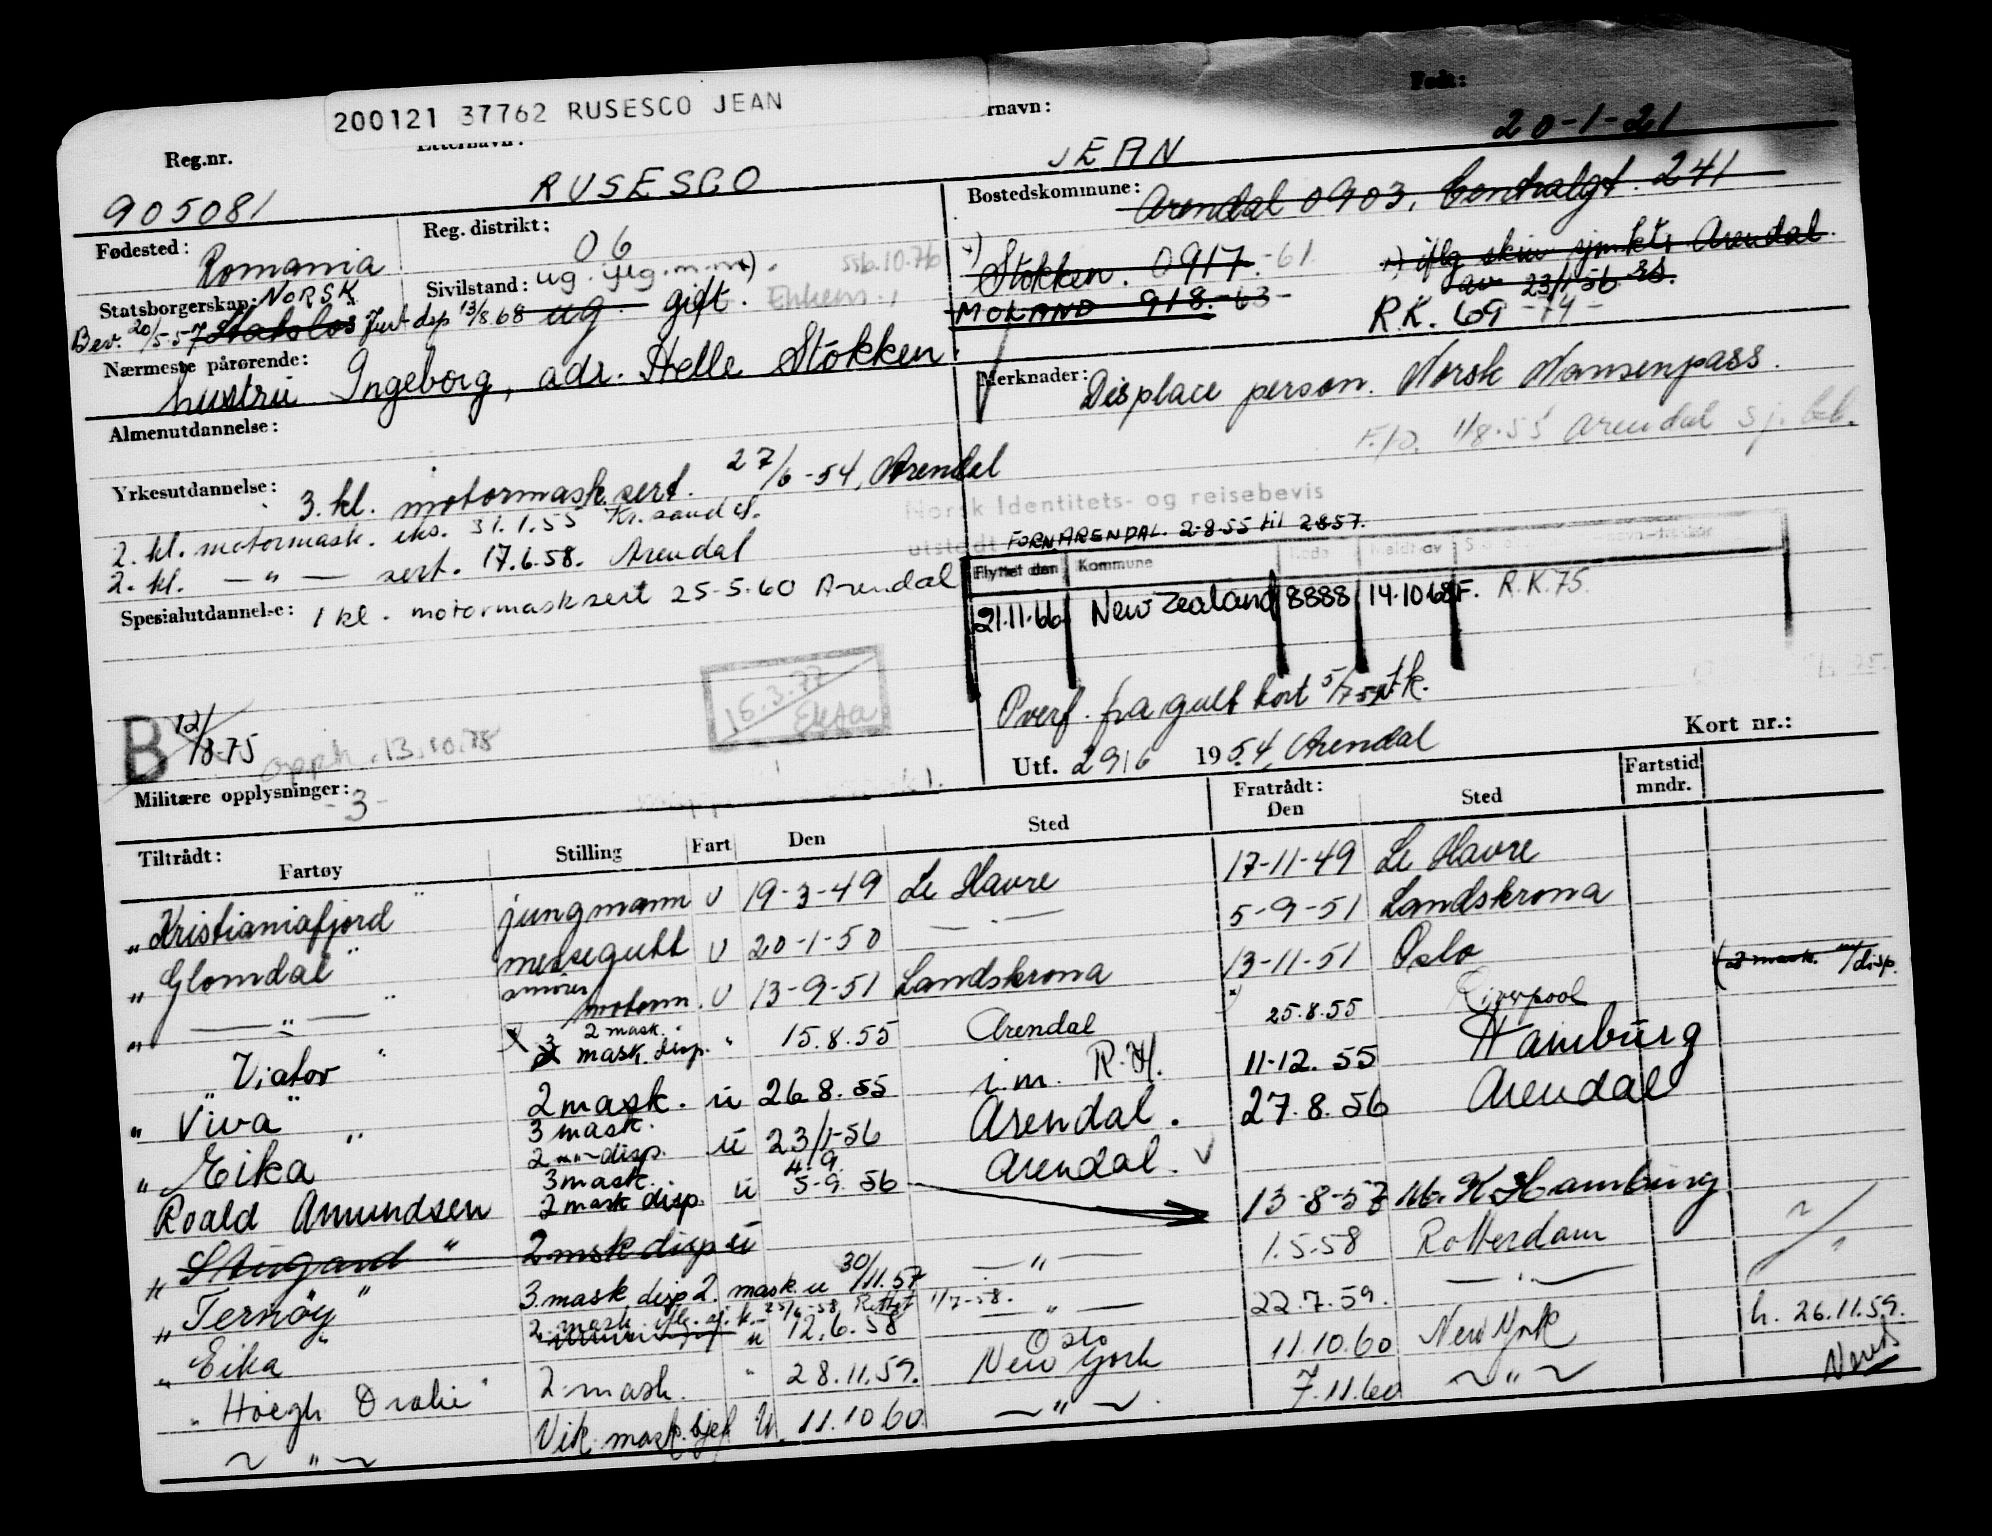 200121 37762 RUSESCO JEAN
Reg.nr. Etternavn: rnavn: Født:
905081 RUSESCO JEAN 20-1-21
Fødested: Romania
Reg. distrikt: 06
Bostedskommune: Arendal 0903, Centralgt. 241
Stokken. 0917.-61
MOLAND 918.-63-
iflg skiv sjmktr Arendal
av 23/1-56
R.K. 69-74-
Statsborgerskap: NORSK
Sivilstand: ug.
ssb.10.76
Bev. 20/5-57 Statsløs Just dsp 13/8.68 ug. gift.
Nærmeste pårørende:
hustru Ingeborg, adr. Helle Stokken
Merknader: Displace person. Norsk Nansenpass.
1/8-55 Arendal sj.
Almenutdannelse:
Yrkesutdannelse: 3. kl. motormask. sert. 27/6-54, Arendal
2. kl. motormask. eks. 31.1.55 Kr.sand
2. kl. — " — sert. 17.6.58. Arendal
Spesialutdannelse: 1 kl. motormasksert 25-5-60 Arendal
Norsk Identitets- og reisebevis
utstedt FORN ARENDAL. 2-8-55 til 2-8-57.
Flyttet den Kommune Kode Meldt av
21.11.66 New Zealand 8888 14.10.68 F. R.K.75.
15.3.77
B 12/8-75
opph. 13.10.78
Overf. fra gult kort 5/7-54
Utf. 29/6 1954, Arendal
Kort nr.:
Militære opplysninger: -3-
Tiltrådt: Fartøy Stilling Fart Den Sted Fratrådt: Den Sted Fartstid mndr.
" Kristianiafjord " jungmann U 19-3-49 Le Havre 17-11-49 Le Havre
" Glomdal " messegutt U 20-1-50 — 5-9-51 Landskrona
" — " — " smører motorm. U 13-9-51 Landskrona 13-11-51 Oslo (2 mask. m/disp.
" Viator " 2 mask. 3 mask. disp. " 15.8.55 Arendal 25.8.55 Liverpool
" Viva " 2 mask. u 26.8.55 i.m. R.H. 11-12.55 Hamburg
" Eika " 3 mask. 2 — disp. u 23/1-56 Arendal. 27.8.56 Arendal
Roald Amundsen 3 mask. 2 mask disp. u 4.9. 5-9.56 Arendal. 13-8-57 Hamburg
" Stugard " 2 mask disp u
" Ternøy " 3 mask disp 2. mask. u 30/11.57 — " — 1.5.58 Rotterdam
" Eika " 2 mask. 25/6-58 1/7-58. u 12.6.58 — " — 22.7.59. — " —
" Höegh Drake " 2. mask. " 28.11.59. Oslo New York 11.10.60 New York h. 26.11.59.
~ " ~ Vik. mask.sjef U. 11.10 60 ~ " ~ 7.11.60 ~ " ~